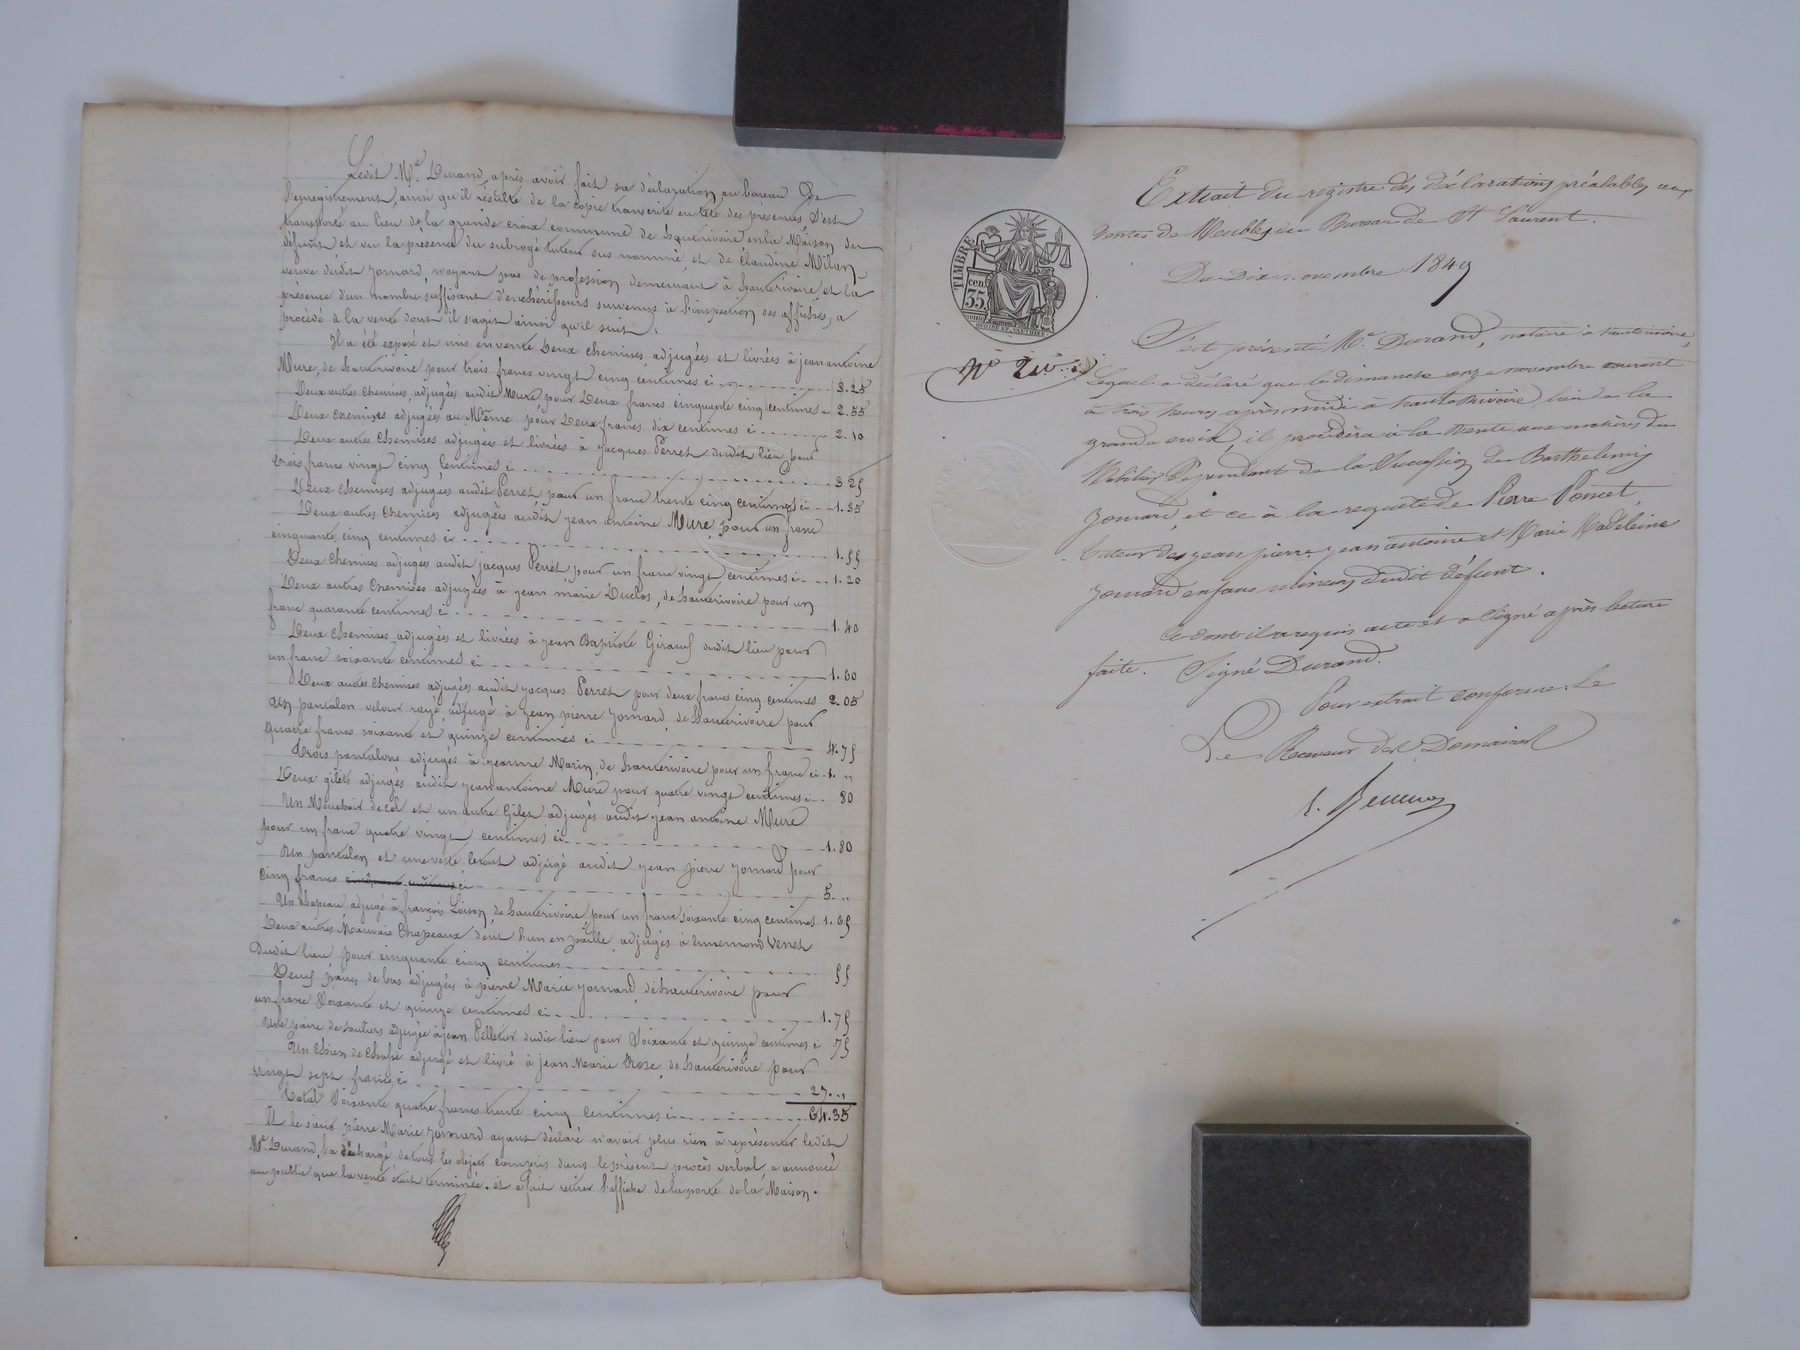 Ledit Me. Durand, après avoir fait sa déclaration au bureau De
l'enregistrement, ainsi qu'il résulte de la copie transcrite en tête des présentes S'est
transporté au lieu de la grande croix commune de hauterivoire en la Maison du
défunt et en la présence du subrogé tuteur sus nommé, et de Claudine Milan
veuve dudit Jomard, n'ayant pas de profession demeurant à hauterivoire et la
présence d'un nombre suffisant d'enchérisseurs survenus à l'inspection des affiches, a
procédé à la vente dont il s'agit ainsi qu'il suit :
Il a été exposé et mis en vente Deux chemises adjugées et livrées à jean antoine
Mure, de hauterivoire pour trois francs vingt cinq centimes ci 3.25
Deux autres chemises adjugées audit Mure pour Deux francs cinquante cinq centimes 2.55
Deux chemises adjugées au Même pour Deux francs dix centimes ci 2.10
Deux autres Chemises adjugées et livrées à Jacques Perret dudit lieu pour
trois francs vingt cinq centimes ci 3.25
Deux chemises adjugées audit Perret, pour un franc trente cinq centimes ci 1.35
Deux autres Chemises adjugées audit jean antoine Mure, pour un franc
cinquante cinq centimes ci 1.55
Deux Chemises adjugées audit jacques Perret, pour un franc vingt centimes ci 1.20
Deux autres Chemises adjugées à jean marie Duclos, de hauterivoire pour un
franc quarante centimes ci 1.40
Deux chemises adjugées et livrées à jean Baptiste Giraud dudit lieu pour
un franc soixante centimes ci 1.60
Deux autres Chemises adjugées audit jacques Perret pour deux francs cinq centimes 2.05
Un pantalon velour rayé adjugé à jean pierre Jomard, de hauterivoire pour
quatre francs soixante et quinze centimes ci 4.75
Trois pantalons adjugés à jeanne Marin, de hauterivoire pour un franc ci 1. "
Deux gilets adjugés audit jean antoine Mure pour quatre vingt centimes ci 80
Un Mouchoir de col et un autre Gilet adjugés audit jean antoine Mure
pour un franc quatre vingt centimes ci 1.80
Un pantalon et une veste adjugé audit jean pierre Jomard pour
cinq francs ci 5. "
Un chapeau adjugé à françois Loison, de hauterivoire, pour un franc soixante cinq centimes 1.65
Deux autres Mauvais Chapeaux dont l'un en paille, adjugés à Venet
dudit lieu pour cinquante cinq centimes 55
paires de bas adjugées à pierre Marie Jomard, de hauterivoire pour
un franc Soixante et quinze centimes ci 1.75
Une paire de souliers adjugée à jean Pelletier dudit lieu pour Soixante et quinze centimes ci 75
Un Chien de Chasse adjugé et livré à Jean Marie Rose, de hauterivoire pour
vingt sept francs ci 27. "
Total Soixante quatre francs trente cinq centimes ci 64.35
Et le sieur pierre Marie Jomard ayant déclaré n'avoir plus rien à représenter ledit
Me Durand, l'a déchargé de tous les objets compris dans le présent procès verbal, a annoncé
au public que la vente était terminée. et a fait retirer l'affiche de la porte de la Maison.
Extrait du registre des déclarations préalables aux
Ventes de Meubles au Bureau de St Laurent.
Du Dix novembre 1849
TIMBRE
cen.
35
S'est présenté Me. Durand, notaire à hauterivoire,
Lequel a déclaré que le dimanche onze novembre courant
à trois heures après midi à hauterivoire, lieu de la
grande croix, il procédera à la Vente aux enchères du
Mobilier Dépendant de la Succession de Barthelemy
Jomard, et ce à la requête de Pierre Poncet,
tuteur des jean pierre, jean antoine et Marie Madeleine
Jomard enfans mineurs dudit défunt.
Ce dont il a requis acte et a Signé après lecture
faite. Signé Durand.
Pour extrait conforme. Le
Le Receveur des Domaines